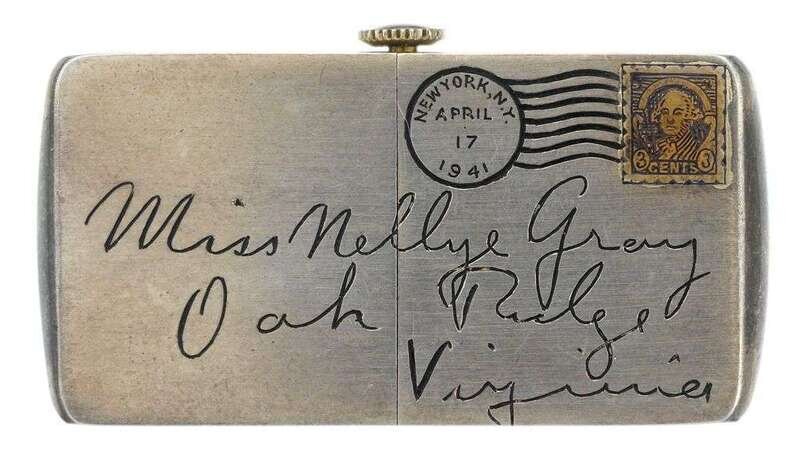 NEW YORK, N.Y.
APRIL
17
1941
3 CENTS 3
Miss Nellye Gray
Oak Ridge
Virginia